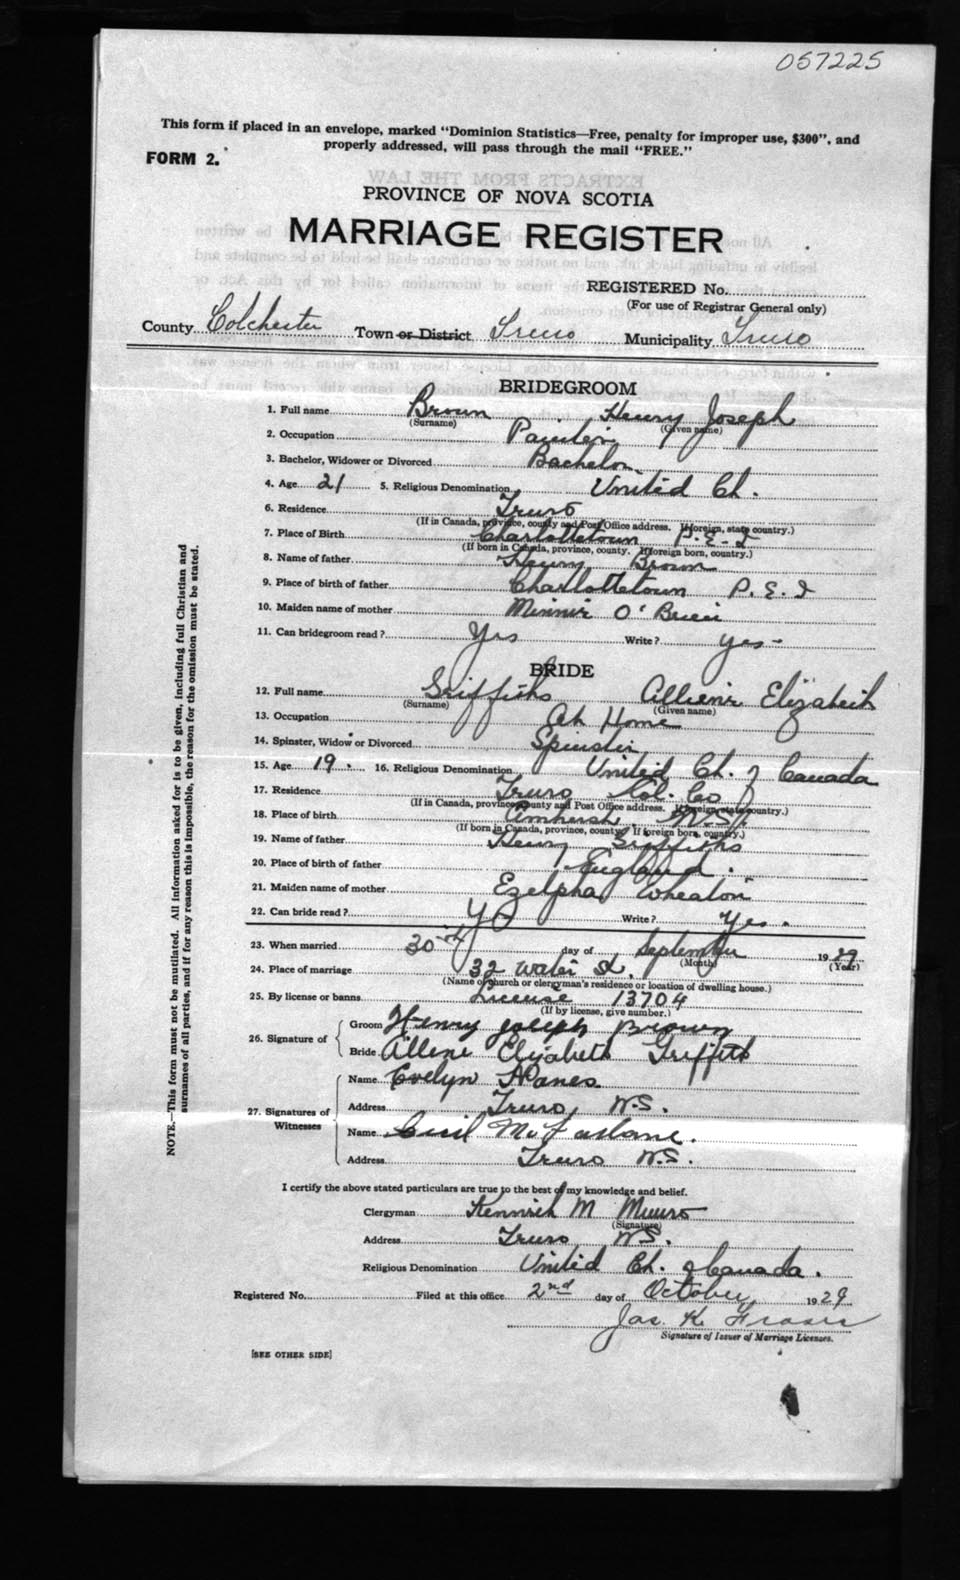 057225
This form if placed in an envelope, marked "Dominion Statistics—Free, penalty for improper use, $300", and
properly addressed, will pass through the mail "FREE."
FORM 2.
PROVINCE OF NOVA SCOTIA
MARRIAGE REGISTER
REGISTERED No.
(For use of Registrar General only)
County Colchester Town or District Truro Municipality Truro
BRIDEGROOM
1. Full name Brown Henry Joseph
(Surname) (Given name)
2. Occupation Painter
3. Bachelor, Widower or Divorced Bachelor
4. Age 21 5. Religious Denomination United Ch.
6. Residence Truro
(If in Canada, province, county and Post Office address. If foreign, state country.)
7. Place of Birth Charlottetown P.E.I
(If born in Canada, province, county. If foreign born, country.)
8. Name of father Henry Brown
9. Place of birth of father Charlottetown P.E.I
10. Maiden name of mother Minnie O'Brien
11. Can bridegroom read? Yes Write? yes-
BRIDE
12. Full name Griffiths Elizabeth
(Surname) (Given name)
13. Occupation At Home
14. Spinster, Widow or Divorced Spinster
15. Age 19. 16. Religious Denomination United Ch. of Canada
17. Residence Truro Col. Co
(If in Canada, province, county and Post Office address. If foreign state country.)
18. Place of birth Amherst N.S.
(If born in Canada, province, county. If foreign born, country.)
19. Name of father Henry Griffiths
20. Place of birth of father England.
21. Maiden name of mother Ezelpha Wheaton
22. Can bride read? Yes Write? Yes.
23. When married 30th day of September 1929
(Month) (Year)
24. Place of marriage 32 Water St.
(Name of church or clergyman's residence or location of dwelling house.)
25. By license or banns License 13704
(If by license, give number.)
26. Signature of
Groom Henry Joseph Brown
Bride Allene Elizabeth Griffith
27. Signatures of Witnesses
Name Evelyn
Address Truro, N.S.
Name Cecil McFarlane.
Address Truro N.S.
I certify the above stated particulars are true to the best of my knowledge and belief.
Clergyman Kenneth M Munro
(Signature)
Address Truro N.S.
Religious Denomination United Ch. of Canada.
Registered No. Filed at this office 2nd day of October 1929
Jas. K Fraser
Signature of Issuer of Marriage Licenses.
[SEE OTHER SIDE]
NOTE.—This form must not be mutilated. All information asked for is to be given, including full Christian and
surnames of all parties, and if for any reason this is impossible, the reason for the omission must be stated.